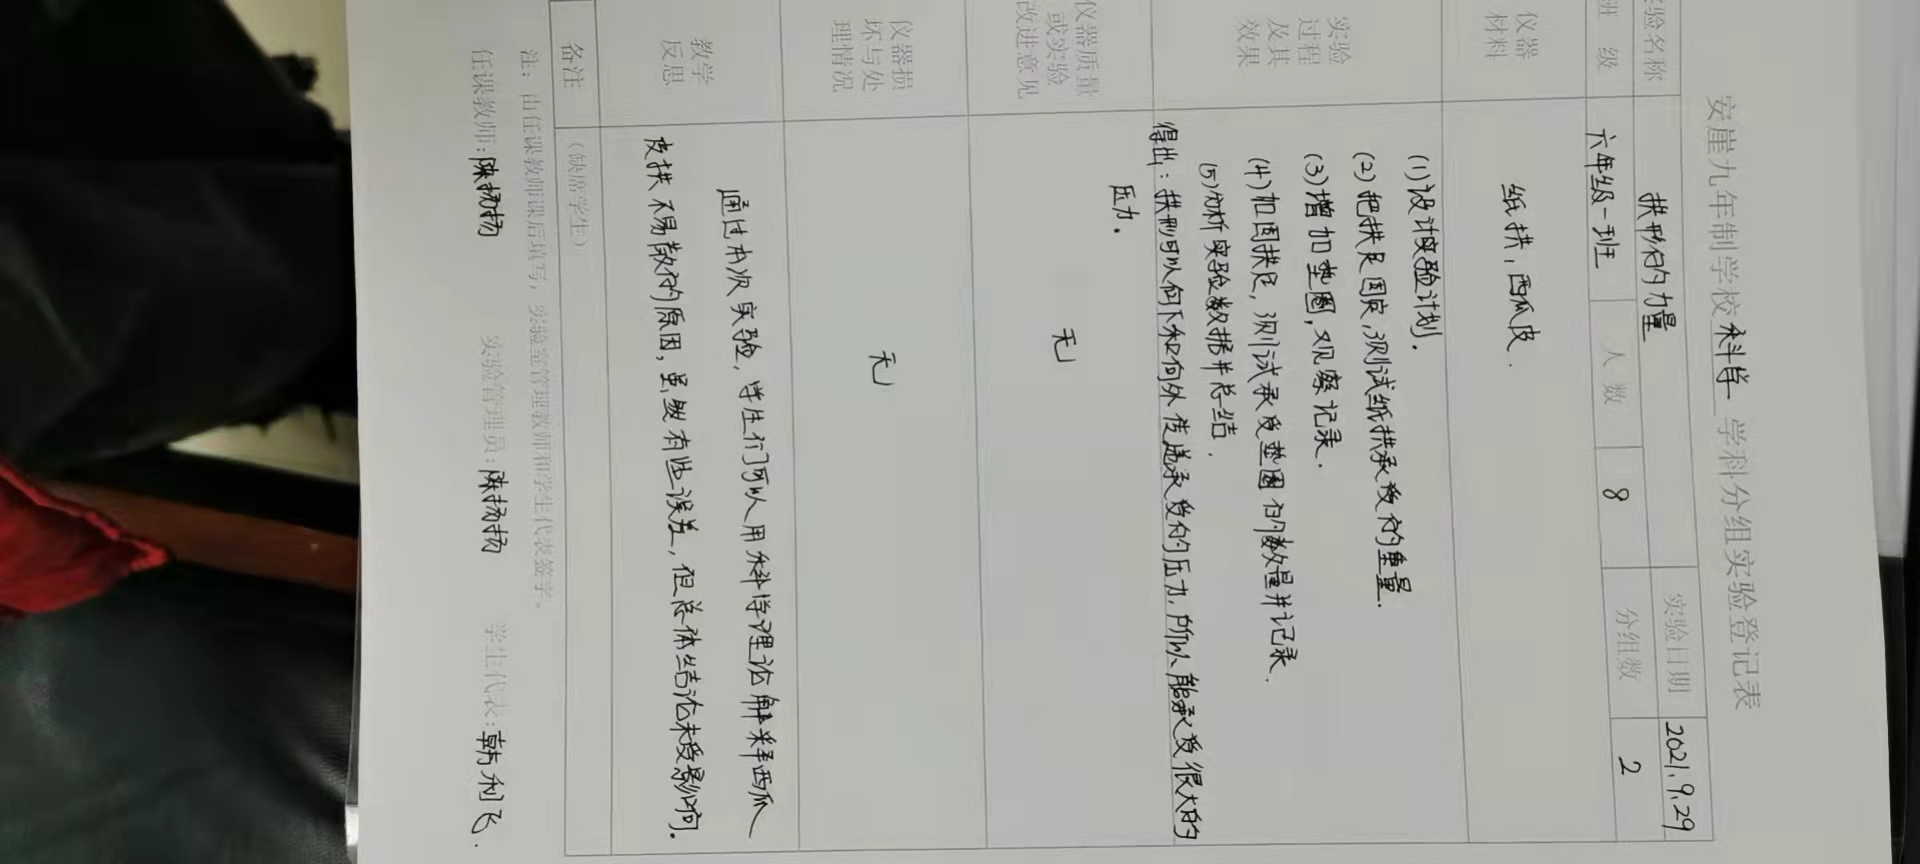 安崖九年制学校 科学 学科分组实验登记表
实验名称 拱形的力量 实验日期 2021.9.29
班 级 六年级一班 人 数 8 分组数 2
仪器
材料
纸拱，西瓜皮.
实验
过程
及其
效果
(1)设计实验计划.
(2)把拱足固定,测试纸拱承受的重量.
(3)增加垫圈,观察记录.
(4)加固拱足,测试承受垫圈的数量并记录.
(5)分析实验数据并总结.
得出：拱形可以向下和向外传递承受的压力,所以能承受很大的
压力.
仪器质量
或实验
改进意见
无
仪器损
坏与处
理情况
无
教学
反思
通过本次实验，学生们可以用科学理论解释西瓜
皮拱不易散的原因,虽然有些误差,但总体结论未受影响.
备注
(缺席学生)
注：由任课教师课后填写，实验室管理教师和学生代表签字。
任课教师:陈扬扬 实验管理员:陈扬扬 学生代表:韩利飞.